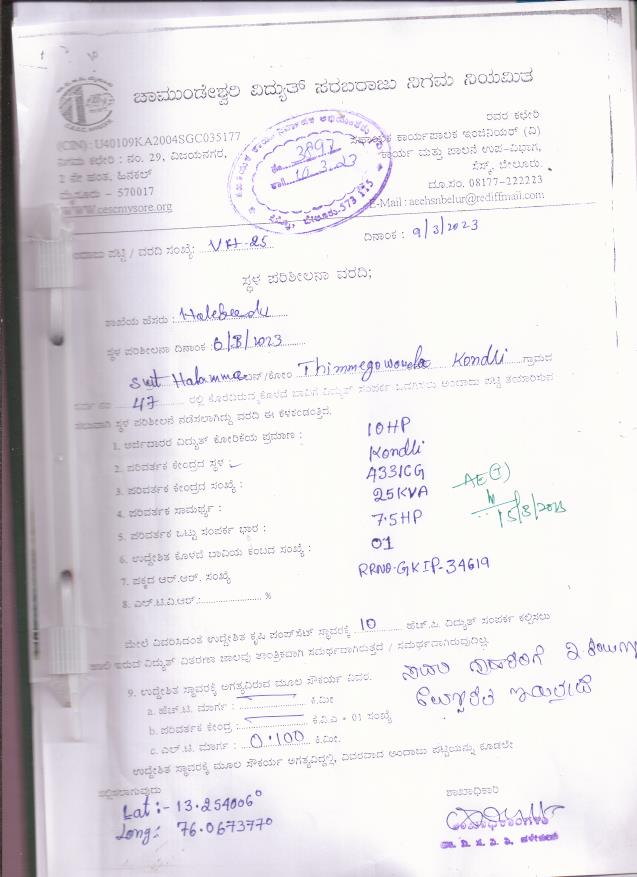 ಚಾಮುಂಡೇಶ್ವರಿ ವಿದ್ಯುತ್ ಸರಬರಾಜು ನಿಗಮ ನಿಯಮಿತ
(CIN): U40109KA2004SGC035177
ನಿಗಮ ಕಛೇರಿ : ನಂ. 29, ವಿಜಯನಗರ,
2 ನೇ ಹಂತ, ಹಿನಕಲ್
ಮೈಸೂರು - 570017
www.cescmysore.org
ರವರ ಕಛೇರಿ
ಸಹಾಯಕ ಕಾರ್ಯಪಾಲಕ ಇಂಜಿನಿಯರ್ (ವಿ)
ಕಾರ್ಯ ಮತ್ತು ಪಾಲನೆ ಉಪ-ವಿಭಾಗ,
ಸೆಸ್ಕ್, ಬೇಲೂರು.
ದೂ.ಸಂ. 08177-222223
E-Mail : aeehsnbelur@rediffmail.com
3897
10.3.23
ಬೇಲೂರು-573 115
ಅಂದಾಜು ಪಟ್ಟಿ / ವರದಿ ಸಂಖ್ಯೆ: VH-25
ದಿನಾಂಕ : 9/3/2023
ಸ್ಥಳ ಪರಿಶೀಲನಾ ವರದಿ;
ಶಾಖೆಯ ಹೆಸರು : Halebeedu
ಸ್ಥಳ ಪರಿಶೀಲನಾ ದಿನಾಂಕ : 6/3/2023
Smt Halamma ಬಿನ್/ಕೋಂ Thimmegowda Kondli ಗ್ರಾಮದ
ಸರ್ವೆ ನಂ 47 ರಲ್ಲಿ ಕೊರೆದಿರುವ ಕೊಳವೆ ಬಾವಿಗೆ ವಿದ್ಯುತ್ ಸಂಪರ್ಕ ಒದಗಿಸಲು ಅಂದಾಜು ಪಟ್ಟಿ ತಯಾರಿಸುವ
ಸಲುವಾಗಿ ಸ್ಥಳ ಪರಿಶೀಲನೆ ನಡೆಸಲಾಗಿದ್ದು ವರದಿ ಈ ಕೆಳಕಂಡಂತ್ತಿದೆ.
1. ಅರ್ಜಿದಾರರ ವಿದ್ಯುತ್ ಕೋರಿಕೆಯ ಪ್ರಮಾಣ : 10HP
2. ಪರಿವರ್ತಕ ಕೇಂದ್ರದ ಸ್ಥಳ : Kondli
3. ಪರಿವರ್ತಕ ಕೇಂದ್ರದ ಸಂಖ್ಯೆ : 4331CG
4. ಪರಿವರ್ತಕ ಸಾಮರ್ಥ್ಯ : 25KVA
5. ಪರಿವರ್ತಕ ಒಟ್ಟು ಸಂಪರ್ಕ ಭಾರ : 7.5HP
6. ಉದ್ದೇಶಿತ ಕೊಳವೆ ಬಾವಿಯ ಕಂಬದ ಸಂಖ್ಯೆ : 01
7. ಪಕ್ಕದ ಆರ್.ಆರ್. ಸಂಖ್ಯೆ RRNO-GKIP-34619
8. ಎಲ್.ಟಿ.ವಿ.ಆರ್: %
AE(T)
15/3/2023
ಮೇಲೆ ವಿವರಿಸಿದಂತೆ ಉದ್ದೇಶಿತ ಕೃಷಿ ಪಂಪ್‌ಸೆಟ್ ಸ್ಥಾವರಕ್ಕೆ 10 ಹೆಚ್.ಪಿ. ವಿದ್ಯುತ್ ಸಂಪರ್ಕ ಕಲ್ಪಿಸಲು
ಹಾಲಿ ಇರುವ ವಿದ್ಯುತ್ ವಿತರಣಾ ಜಾಲವು ತಾಂತ್ರಿಕವಾಗಿ ಸಮರ್ಥವಾಗಿರುತ್ತದೆ / ಸಮರ್ಥವಾಗಿರುವುದಿಲ್ಲ
9. ಉದ್ದೇಶಿತ ಸ್ಥಾವರಕ್ಕೆ ಅಗತ್ಯವಿರುವ ಮೂಲ ಸೌಕರ್ಯ ವಿವರ.
a. ಹೆಚ್.ಟಿ. ಮಾರ್ಗ : ಕಿ.ಮೀ
b. ಪರಿವರ್ತಕ ಕೇಂದ್ರ : ಕೆ.ವಿ.ಎ * 01 ಸಂಖ್ಯೆ
c. ಎಲ್.ಟಿ. ಮಾರ್ಗ : 0.100 ಕಿ.ಮೀ.
ಉದ್ದೇಶಿತ ಸ್ಥಾವರಕ್ಕೆ ಮೂಲ ಸೌಕರ್ಯ ಅಗತ್ಯವಿದ್ದಲ್ಲಿ, ವಿವರವಾದ ಅಂದಾಜು ಪಟ್ಟಿಯನ್ನು ಕೂಡಲೇ
ಸಲ್ಲಿಸಲಾಗುವುದು
ಶಾಖಾಧಿಕಾರಿ
Lat:- 13.254006°
Long: 76.067377°
ಶಾಖಾಧಿಕಾರಿಗಳು